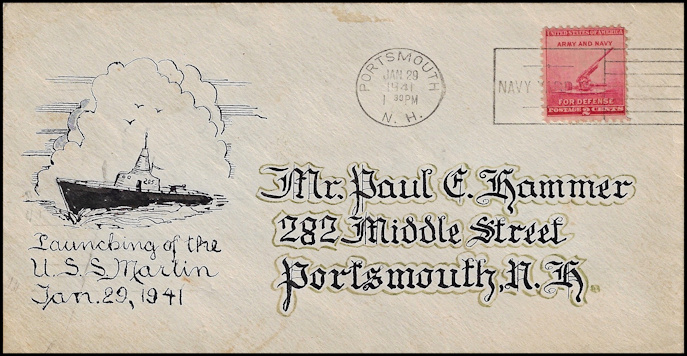 PORTSMOUTH
JAN 29
1941
1 30 PM
N. H.
NAVY
UNITED STATES OF AMERICA
ARMY AND NAVY
FOR DEFENSE
POSTAGE 2 CENTS
Launching of the
U.S.S Marlin
Jan. 29, 1941
Mr. Paul E. Hammer
282 Middle Street
Portsmouth, N. H.